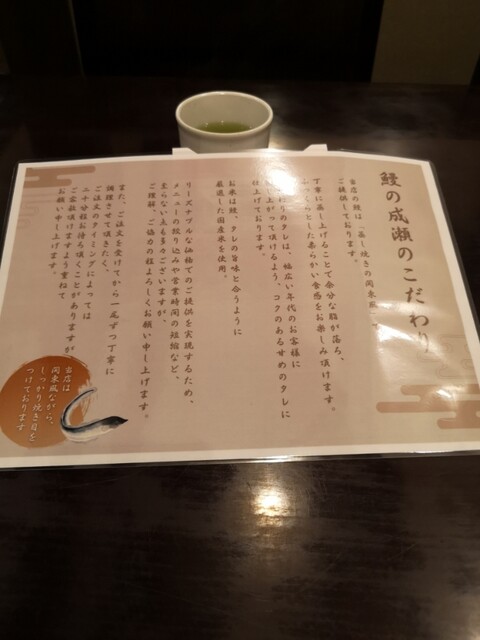 鰻の成瀬のこだわり
当店の鰻は「蒸し焼きの関東風」
ご提供しております。
丁寧に蒸し上げることで余分な脂が落ち、
ふっくらとした柔らかい食感をお楽しみ頂けます。
わりのタレは、幅広い年代のお客様に
し上がって頂けるよう、コクのあるせめのタレに
仕上げております。
お米は鰻、タレの旨味と合うように
厳選した国産米を使用。
リーズナブルな価格でのご提供を実現するため、
メニューの絞り込みや営業時間の短縮など、
至らない点も多々ございますが、
ご理解、ご協力の程よろしくお願い申し上げます。
また、ご注文を受けてから一尾ずつ丁寧に
調理させて頂きたく、
ご注文のタイミングによっては
二十分程お待ち頂くことがありますが
ご容赦頂けますよう重ねて
お願い申し上げます。
当店は
関東風ながら、
しっかり焼き目を
つけております